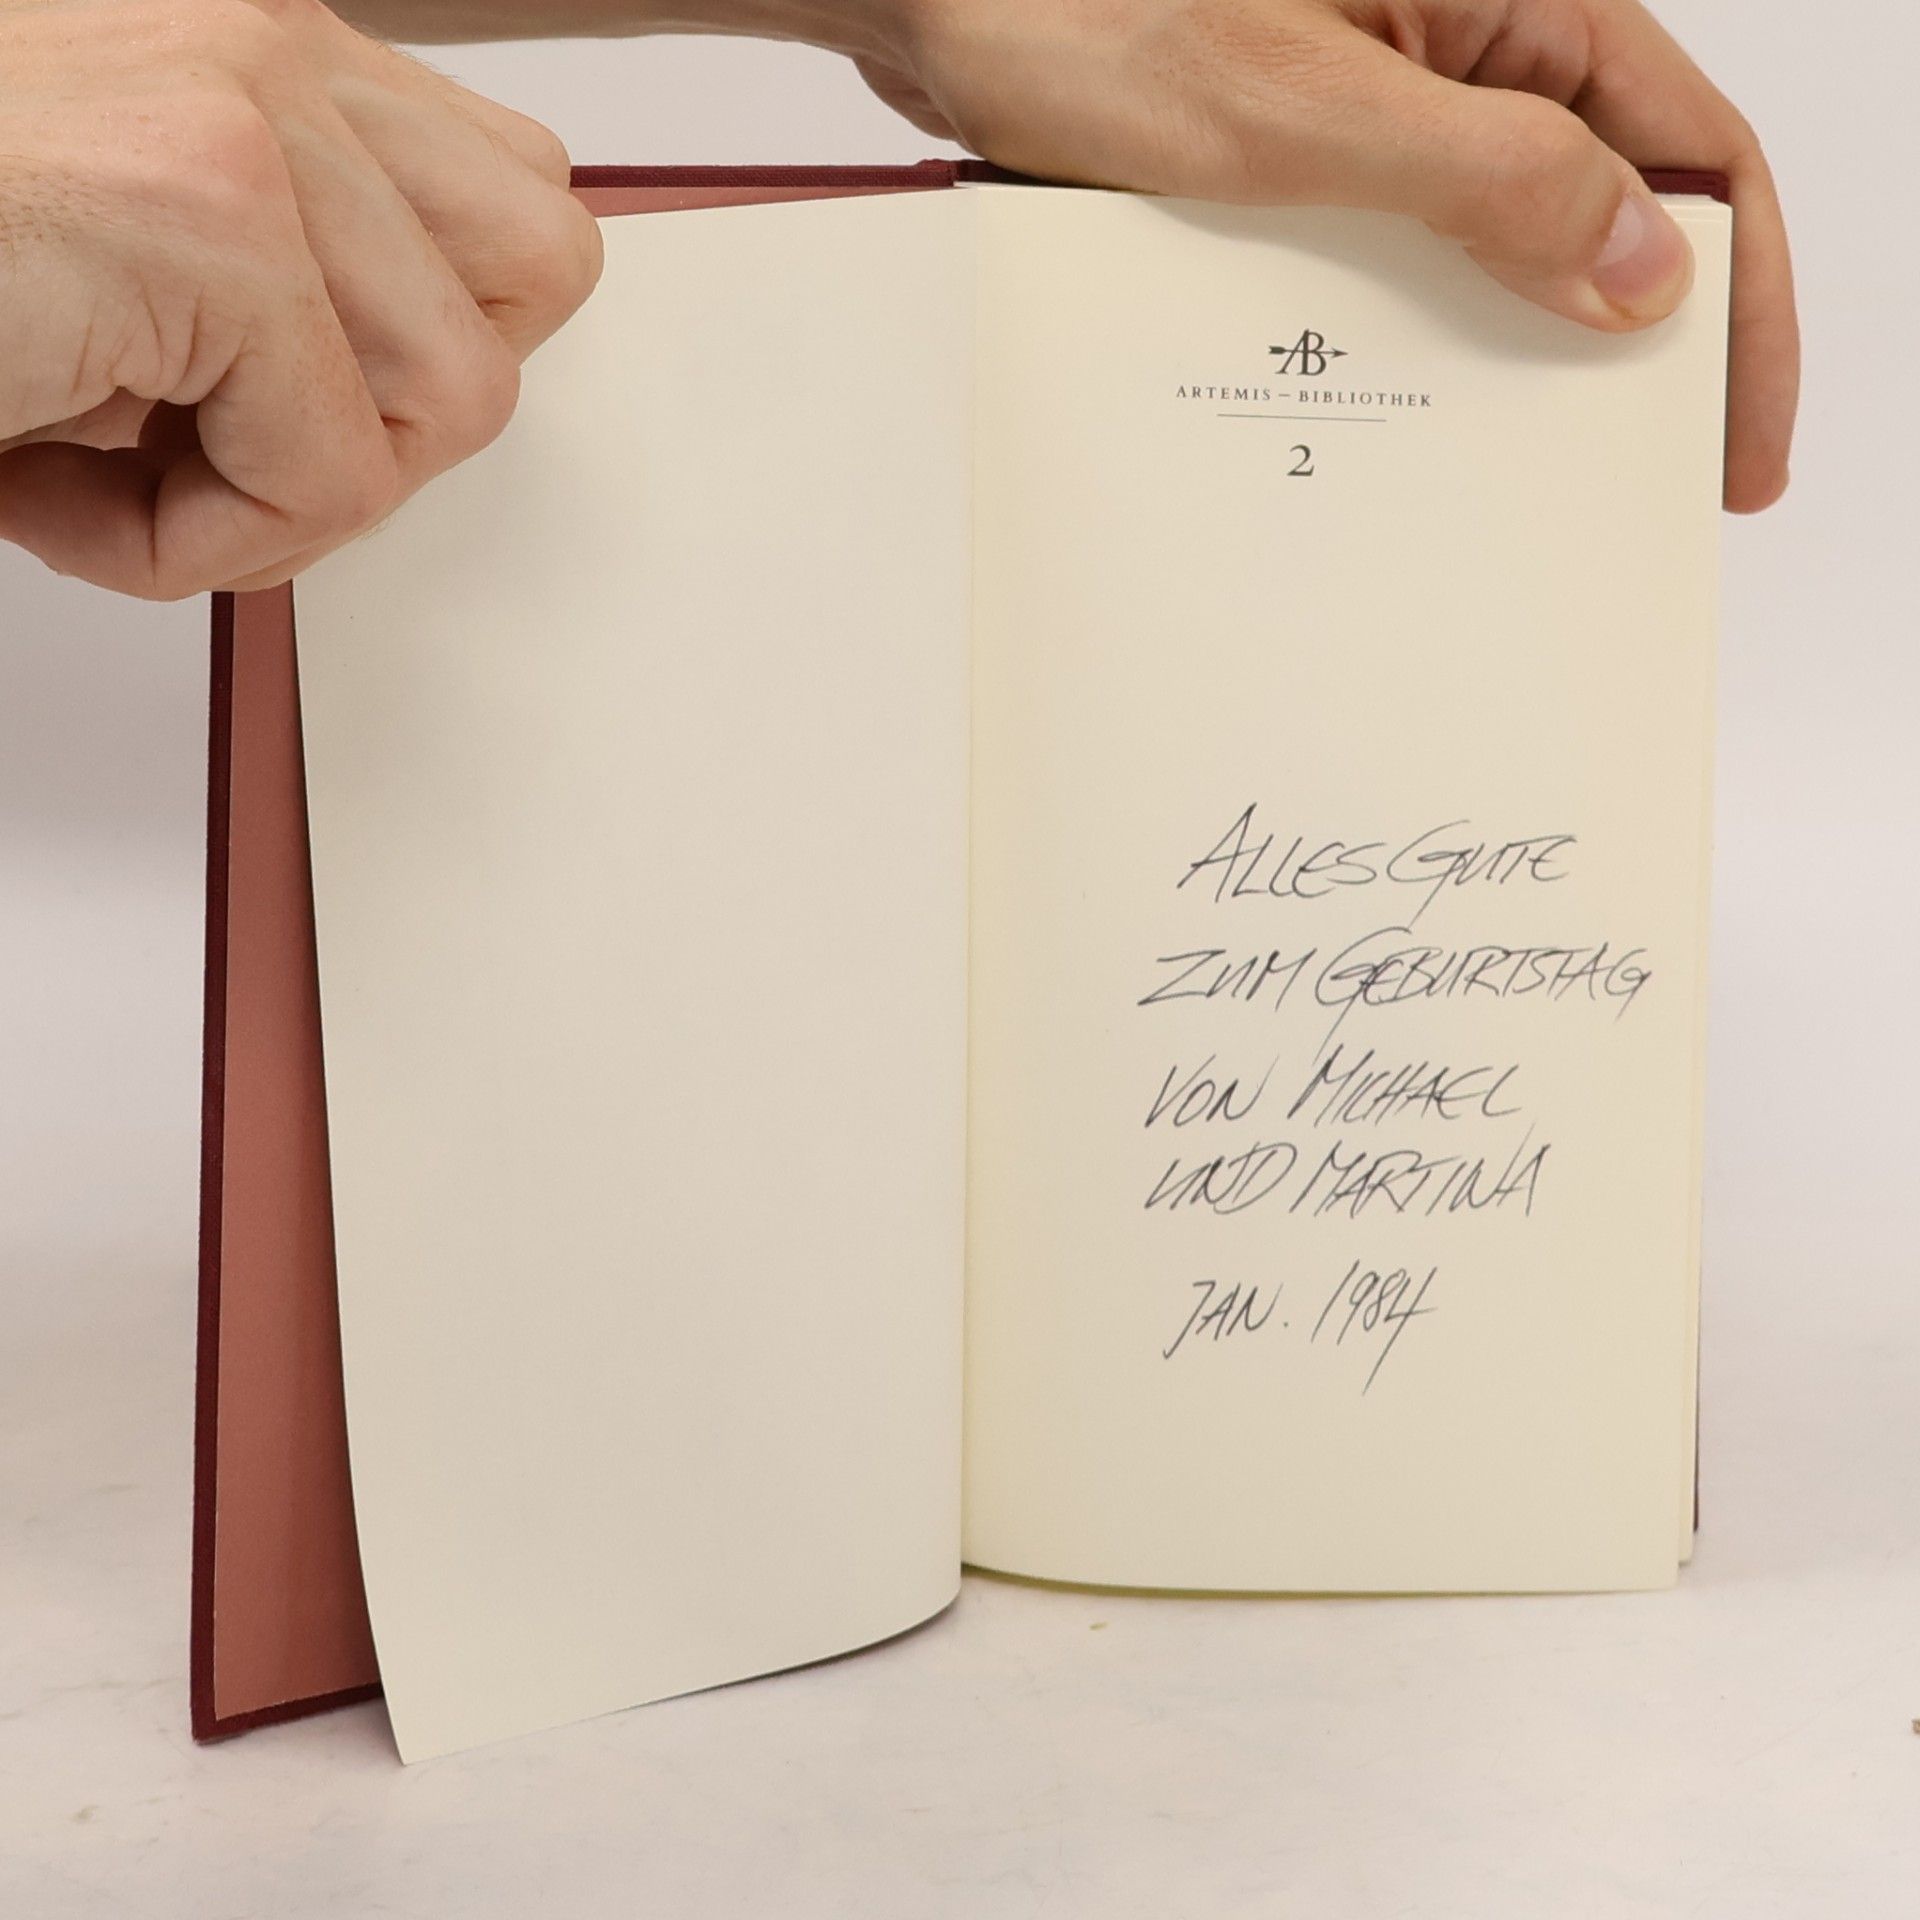 AB
ARTEMIS – BIBLIOTHEK
2
ALLES GUTE
ZUM GEBURTSTAG
VON MICHAEL
UND MARTINA
JAN. 1984